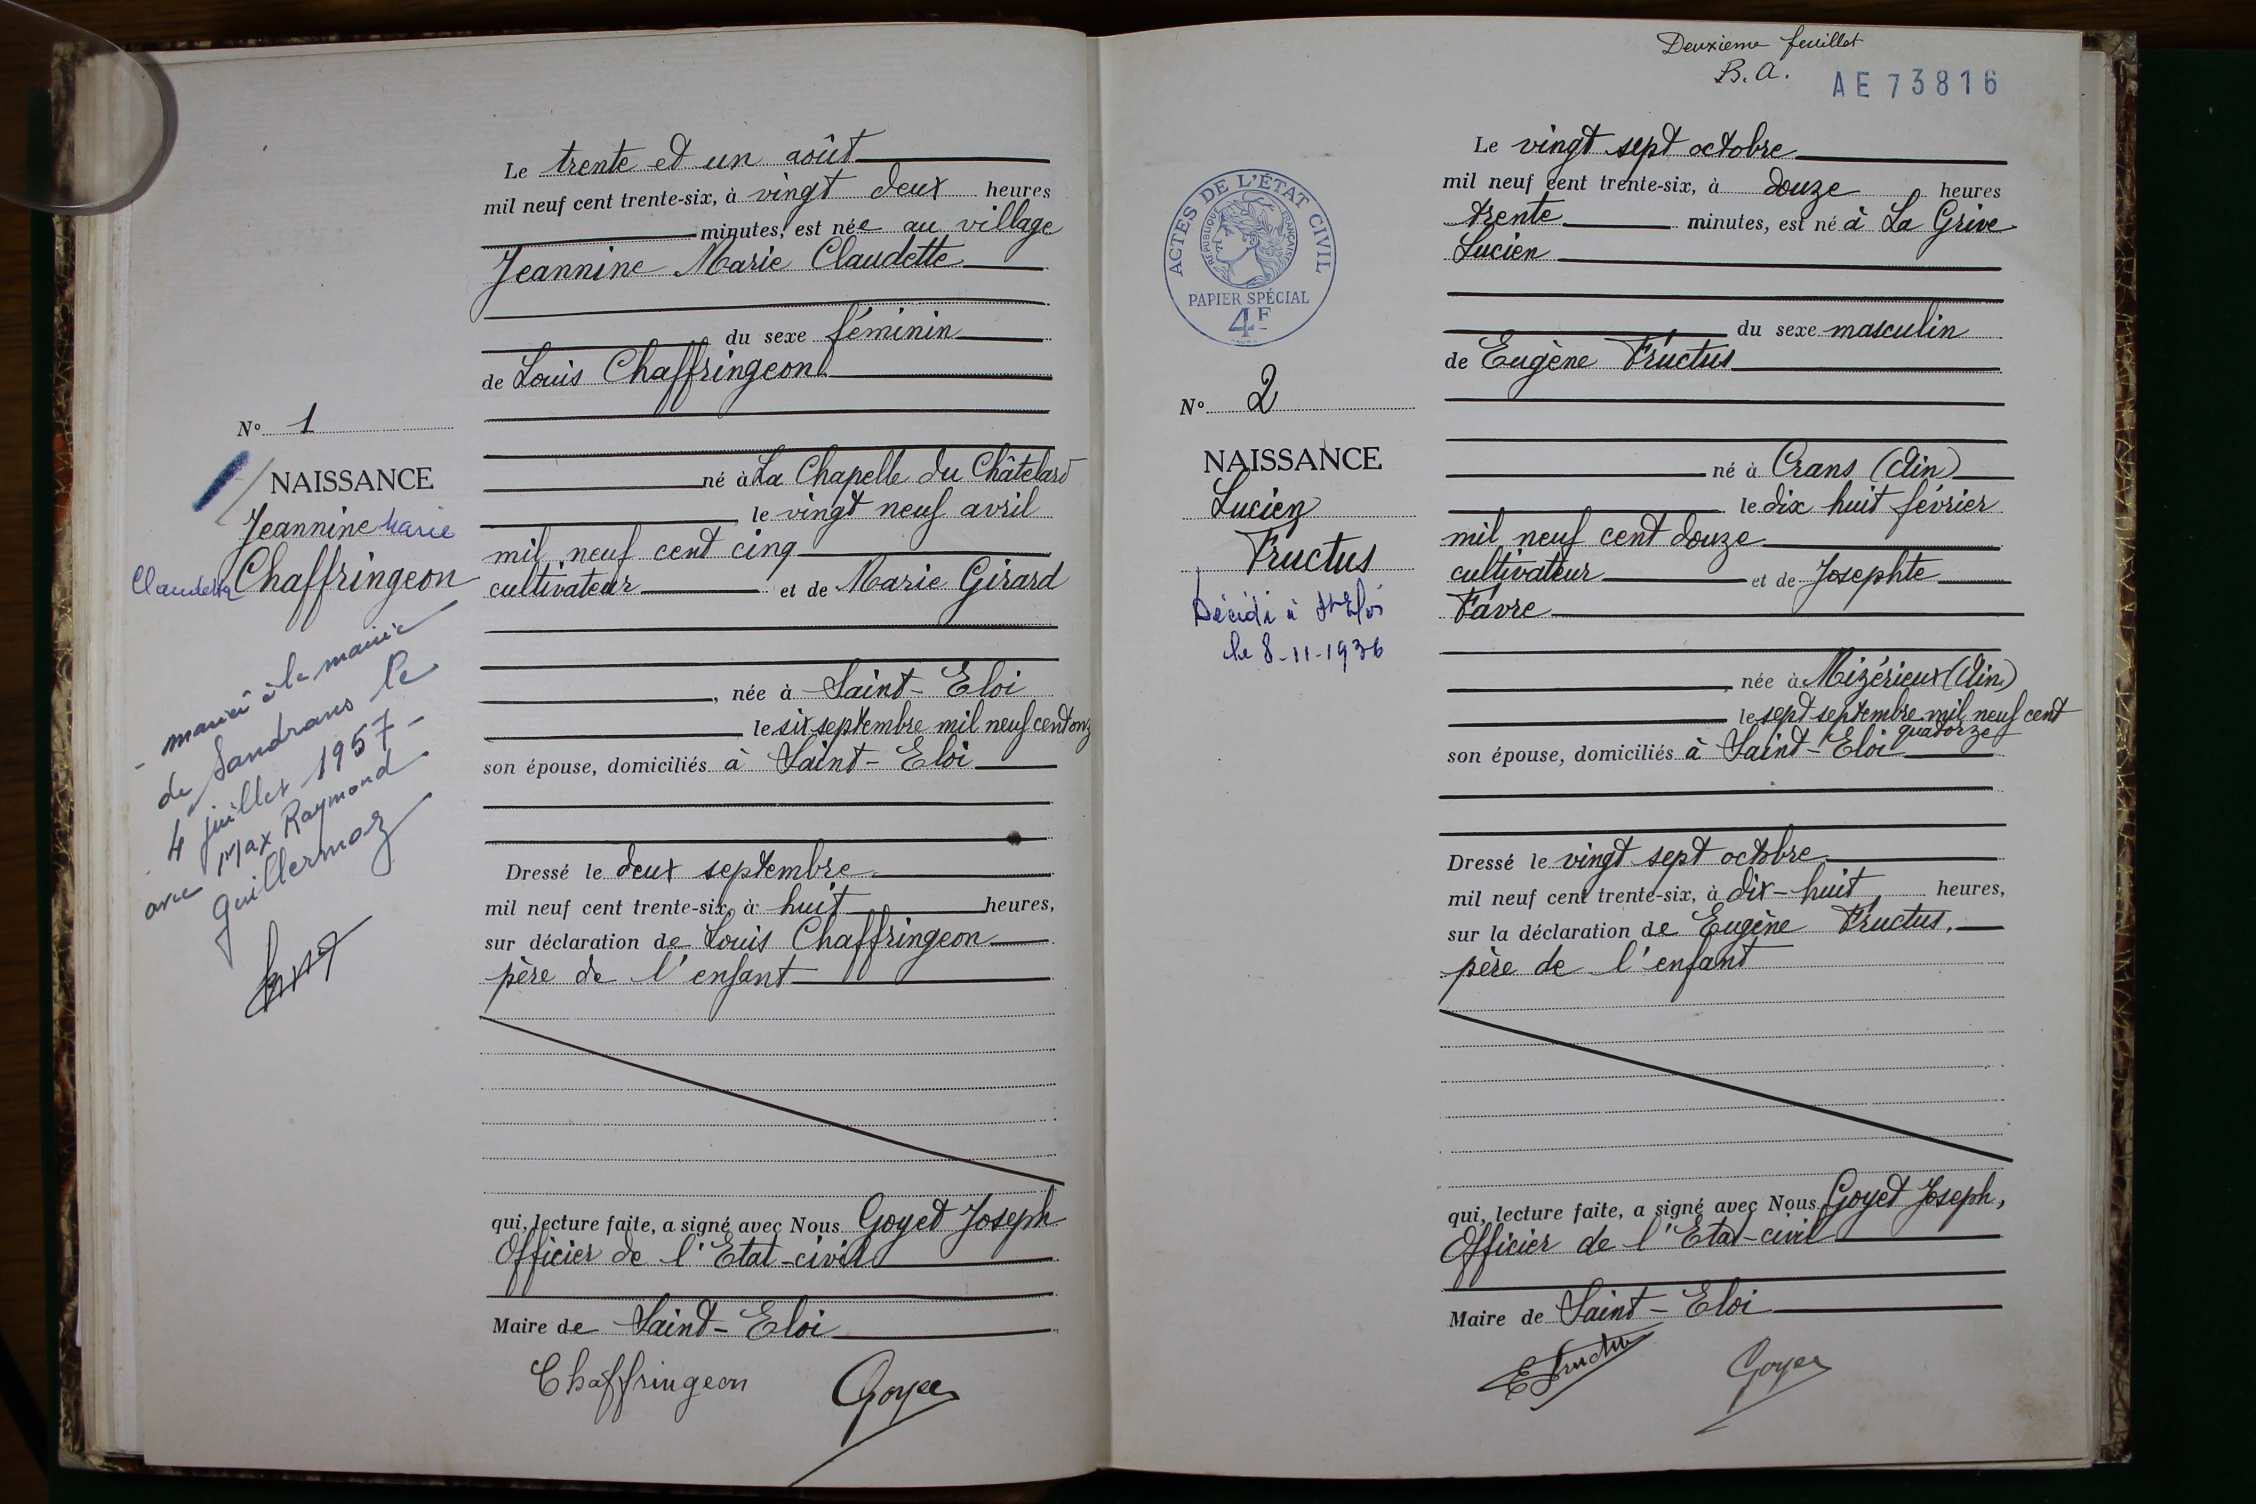 Le trente et un août
mil neuf cent trente-six, à vingt deux heures
minutes, est née au village
Jeannine Marie Claudette
du sexe féminin
de Louis Chaffringeon
né à La Chapelle du Châtelard
le vingt neuf avril
mil neuf cent cinq
cultivateur et de Marie Girard
, née à Saint-Eloi
le six septembre mil neuf cent onze
son épouse, domiciliés à Saint-Eloi
Dressé le deux septembre
mil neuf cent trente-six, à huit heures,
sur déclaration de Louis Chaffringeon
père de l'enfant
qui, lecture faite, a signé avec Nous Goyet Joseph
Officier de l'Etat-civil
Maire de Saint-Eloi
Chaffringeon Goyet
N° 1
NAISSANCE
Jeannine Marie
Claudette Chaffringeon
- marié à la mairie
de Sandrans le
4 juillet 1957 -
avec Max Raymond
Guillermoz
Deuxieme feuillet
B. A. AE 73816
Le vingt sept octobre
mil neuf cent trente-six, à douze heures
trente minutes, est né à La Grive
Lucien
du sexe masculin
de Eugène Fructus
né à Crans (Ain)
le dix huit février
mil neuf cent douze
cultivateur et de Josephte
Favre
, née à Mizérieux (Ain)
le sept septembre mil neuf cent
quatorze
son épouse, domiciliés à Saint-Eloi
Dressé le vingt sept octobre
mil neuf cent trente-six, à dix-huit heures,
sur la déclaration de Eugène Fructus,
père de l'enfant
qui, lecture faite, a signé avec Nous Goyet Joseph,
Officier de l'Etat-civil
Maire de Saint-Eloi
E Fructus Goyet
ACTES DE L'ÉTAT CIVIL
RÉPUBLIQUE FRANÇAISE
PAPIER SPÉCIAL
4F
N° 2
NAISSANCE
Lucien
Fructus
Décédé à St Eloi
le 8-11-1936